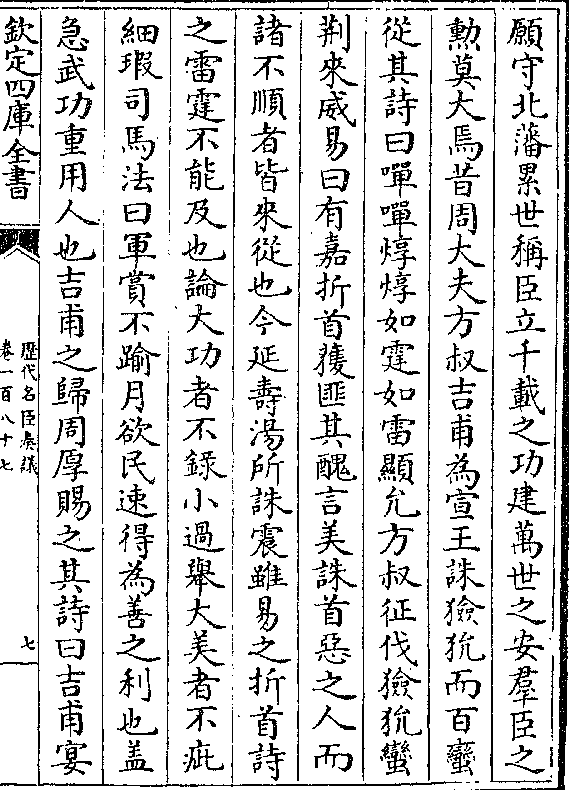 願守北藩累世稱臣立千載之功建萬世之安羣臣之
勲莫大焉昔周大夫方叔吉甫為宣王誅獫狁而百蠻
從其詩曰嘽嘽焞焞如霆如雷顯允方叔征伐獫狁蠻
荆來威易曰有嘉折首獲匪其醜言美誅首惡之人而
諸不順者皆來從也今延壽湯所誅震雖易之折首詩
之雷霆不能及也論大功者不錄小過舉大美者不疵
細瑕司馬法曰軍賞不踰月欲民速得為善之利也盖
急武功重用人也吉甫之歸周厚賜之其詩曰吉甫宴
欽定四庫全書
歷代名臣奏議
卷一百八十七
七